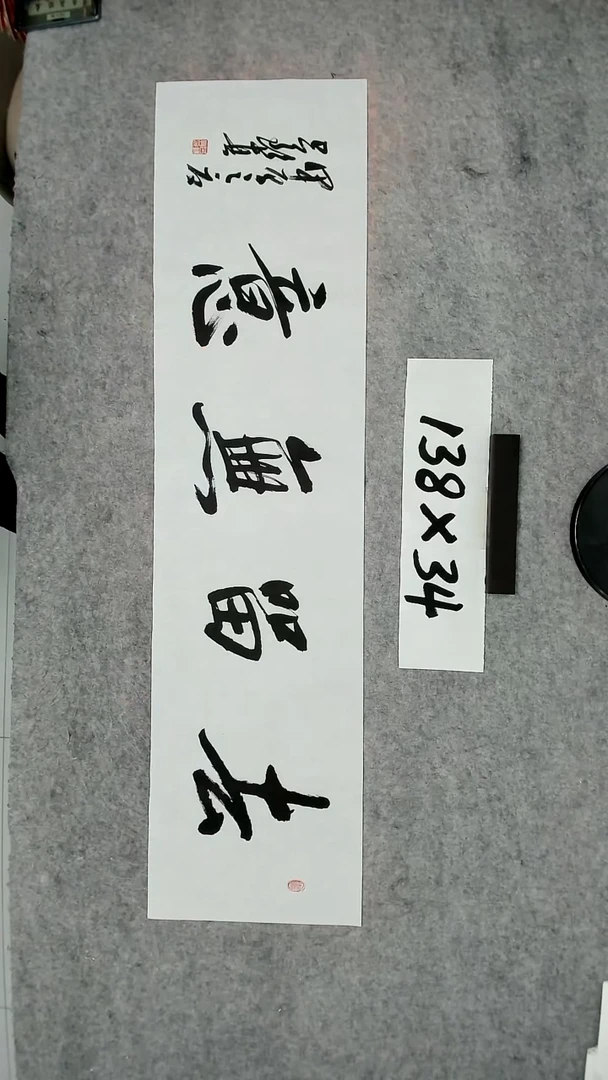 去留無意
138×34